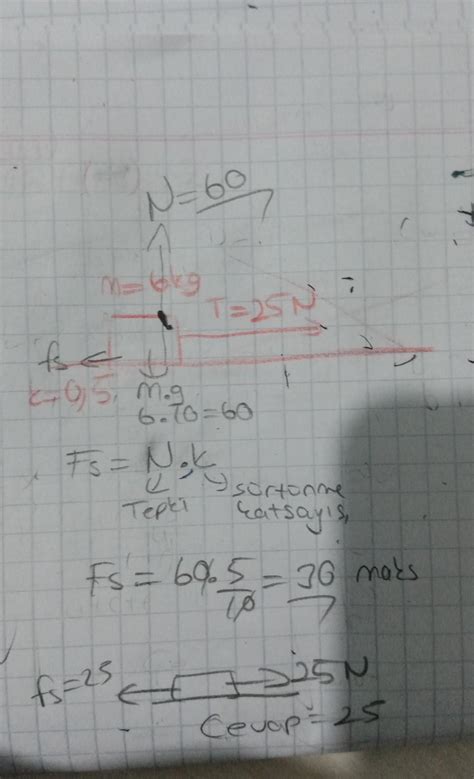 N=60
m=6kg
T=25N
fs
k=0,5
m.g
6.10=60
Fs=N.k
Tepki
sürtünme
katsayısı
Fs=60.5/10=30 maks
fs=25
25N
Cevap=25